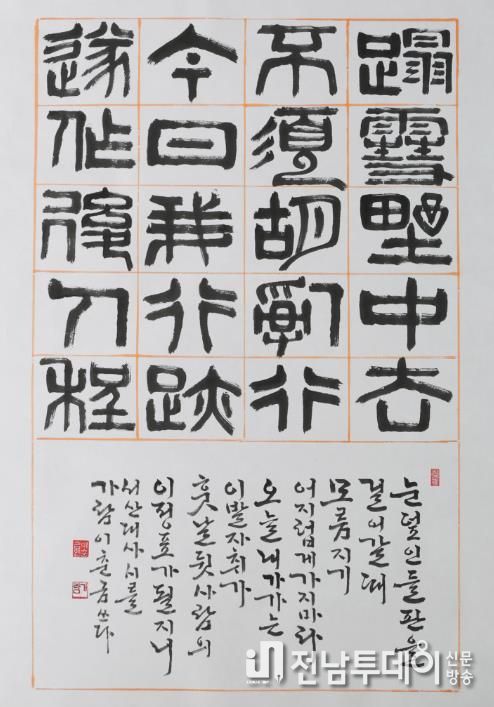 蹋雪野中去
不須胡亂行
今日我行跡
遂作後人程
눈 덮인 들판을
걸어갈 때
모름지기
어지럽게 가지마라
오늘 내가 가는
이 발자취가
훗날 뒷사람의
이정표가 될지니
서산대사 시를
가람 이춘금 쓰다
전남투데이 신문 방송